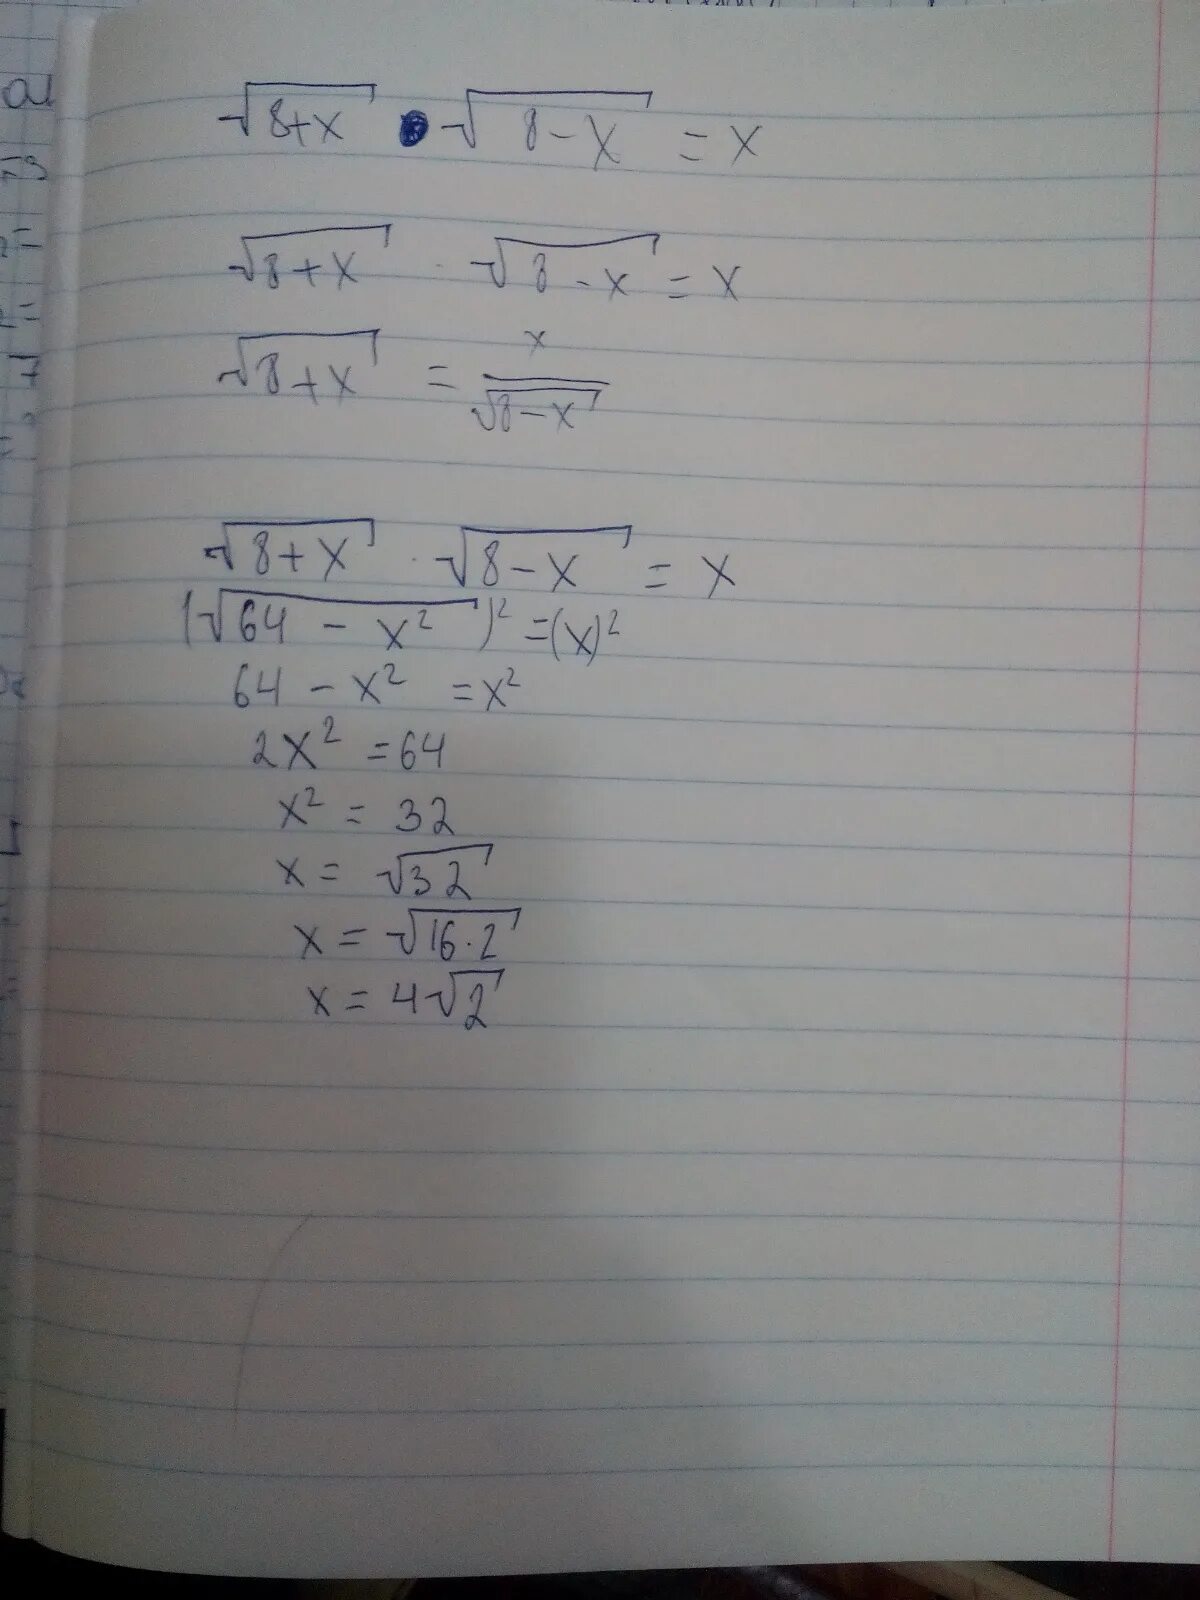 √8+x · √8-x = x
√8+x · √8-x = x
√8+x = x/√8-x
√8+x · √8-x = x
(√64 - x²)² = (x)²
64 - x² = x²
2x² = 64
x² = 32
x = √32
x = √16·2
x = 4√2